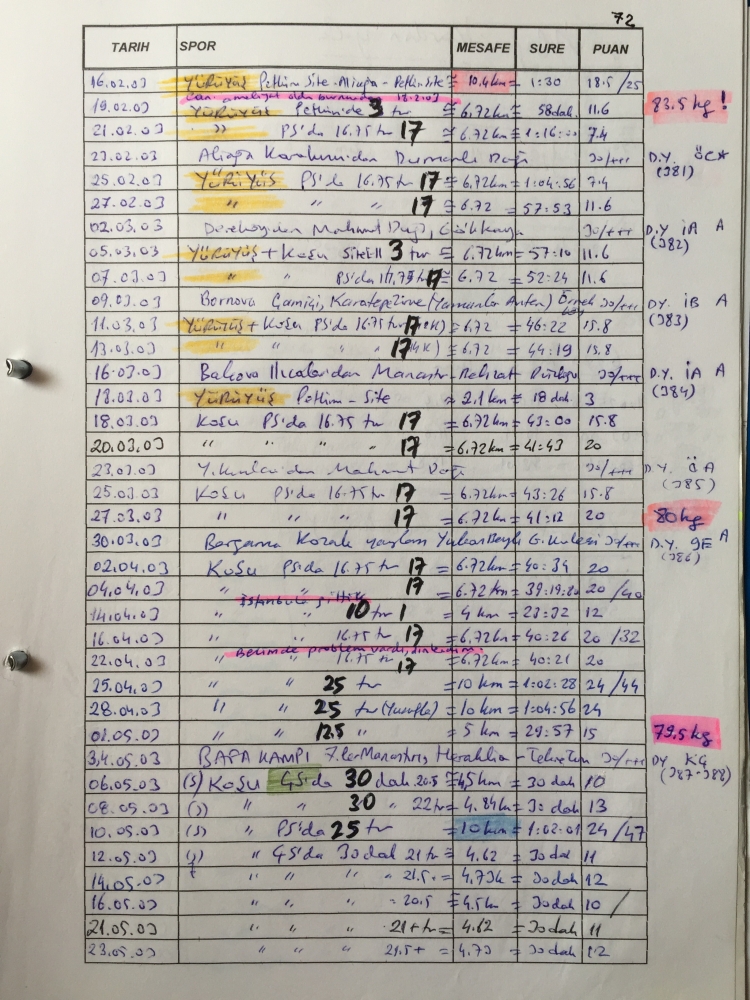 72
TARIH SPOR MESAFE SURE PUAN
16.02.03 YÜRÜYÜŞ Petkim Site-Aliağa-Petkim Site ≅ 10.4km = 1:30 18.5/25
19.02.03 YÜRÜYÜŞ Petkim'de 3 tur ≅ 6.72km = 58dak. 11.6 83.5kg!
21.02.03 " PS'da 16.75 tur 17 ≅ 6.72km = 1:16:00 7.4
23.02.03 Aliağa Karakuzu'dan Dumanlı Dağı 30/+++ D.Y. ÖCA
(381)
25.02.03 YÜRÜYÜŞ PS'da 16.75 tur 17 ≅ 6.72km = 1:04:56 7.4
27.02.03 " " " 17 ≅ 6.72 = 57:53 11.6
02.03.03 Dereköy'den Mahmut Dağı, Gökkaya 30/+++ D.Y İA A
(382)
05.03.03 YÜRÜYÜŞ + Koşu Site II 3 tur ≅ 6.72km = 57:10 11.6
07.03.03 " " PS'da 17 ≅ 6.72 = 52:24 11.6
09.03.03 Bornova Çamiçi, Karatepe 30/+++ DY. İB A
(383)
11.03.03 YÜRÜYÜŞ + Koşu PS'da 16.75 tur 17 ≅ 6.72 = 46:22 15.8
13.03.03 " " " " 17 (4K) ≅ 6.72 = 44:19 15.8
16.03.03 Balçova Ilıcaları'dan Manastır 30/+++ D.Y. İA A
(384)
18.03.03 YÜRÜYÜŞ Petkim - Site ≅ 2.1km = 18 dak. 3
18.03.03 Koşu PS'da 16.75 tur 17 = 6.72km = 43:00 15.8
20.03.03 " " " " 17 = 6.72km = 41:43 20
23.03.03 Mahmut Dağı 30/+++ D.Y. ÖA
(385)
25.03.03 Koşu PS'da 16.75 tur 17 = 6.72km = 43:26 15.8
27.03.03 " " " 17 = 6.72km = 41:12 20 80kg
30.03.03 Bergama Kozak yaylası 30/+++ D.Y. GE A
(386)
02.04.03 Koşu PS'da 16.75 tur 17 = 6.72km = 40:34 20
04.04.03 " " 17 = 6.72km = 39:19:20 20/40
İstanbul'a gittik
14.04.03 " " 10 tur 1 = 4 km = 23:32 12
16.04.03 " " 16.75 tur 17 = 6.72km = 40:26 20/32
Belimde problem vardı, dinlendim.
22.04.03 " " 16.75 tur 17 = 6.72km = 40:21 20
25.04.03 " " 25 tur = 10 km = 1:02:28 24/44
28.04.03 " " 25 tur = 10 km = 1:04:56 24
01.05.03 " " 12.5 = 5 km = 29:57 15 79.5kg
3,4.05.03 BAFA KAMPI 7.ler Manastırı, Heraklia - 30/+++ DY KG
(387-388)
06.05.03 (S) Koşu GS'da 30 dak 20.5 ≅ 4.5km = 30 dak 10
08.05.03 (S) " " 30 " 22 tur = 4.84km = 30 dak 13
10.05.03 (S) " PS'da 25 tur = 10km = 1:02:01 24/47
12.05.03 (S) " GS'da 30dak 21 tur = 4.62 = 30 dak 11
14.05.03 " " " " 21.5 = 4.73k = 30dak 12
16.05.03 " " " 20.5 ≅ 4.5km = 30dak 10/
21.05.03 " " " 21 tur = 4.62 = 30 dak 11
23.05.03 " " " 21.5 t = 4.73 = 30 dak 12